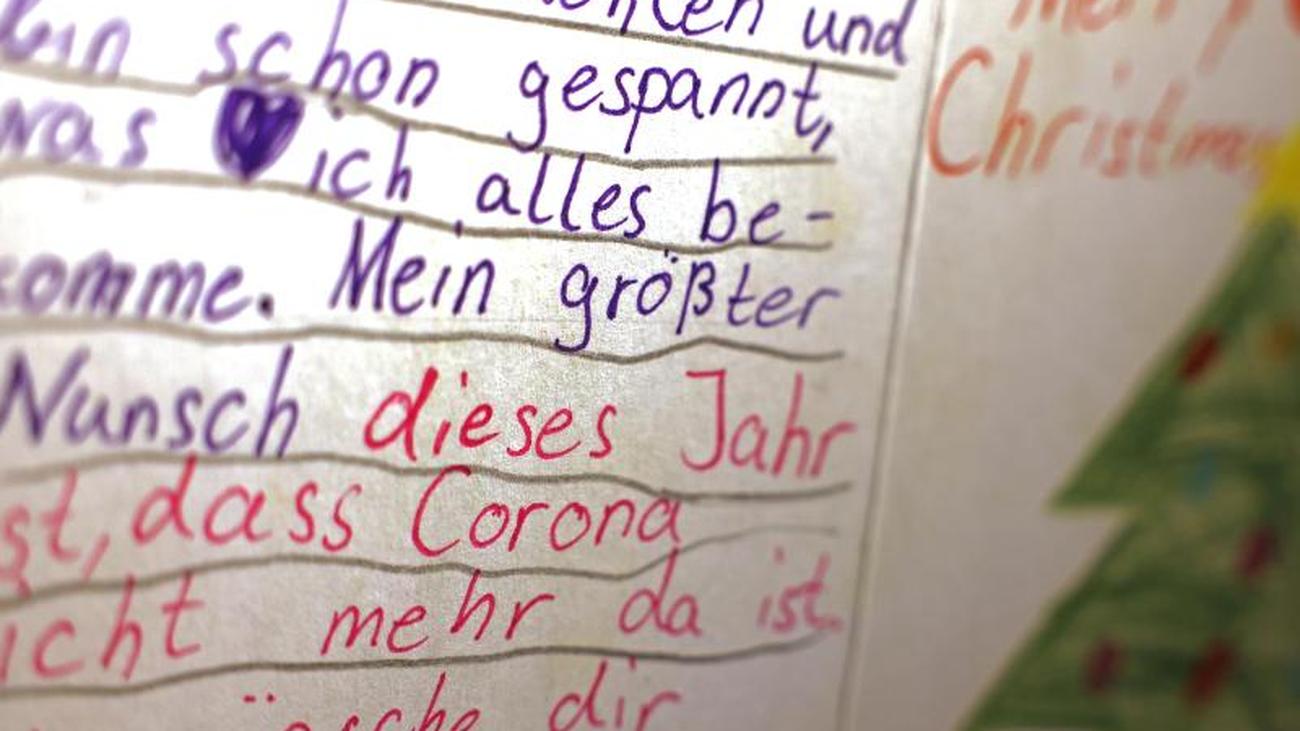 und
schon gespannt,
was ich alles be-
omme. Mein größter
Wunsch dieses Jahr
st, dass Corona
icht mehr da ist.
dir
Merry
Christmas